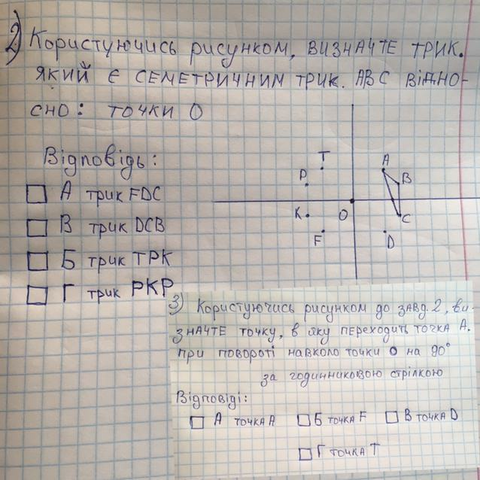 2) Користуючись рисунком, визначте трик.
який є семетричним трик. АВС відно-
сно: точки О
Відповідь:
А трик FDC
В трик DCB
Б трик ТРК
Г трик РКР
Т
Р
К
F
О
А
В
С
D
3) Користуючись рисунком до завд. 2, ви-
значте точку, в яку переходить точка А.
при повороті навколо точки О на 90°
за годинниковою стрілкою
Відповіді:
А точка А
Б точка F
В точка D
Г точка Т